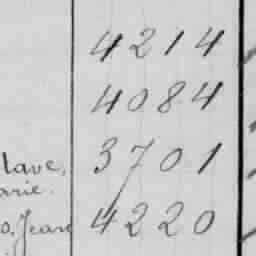 4214
4084
lave. 3701
arie.
o. Jean 4220